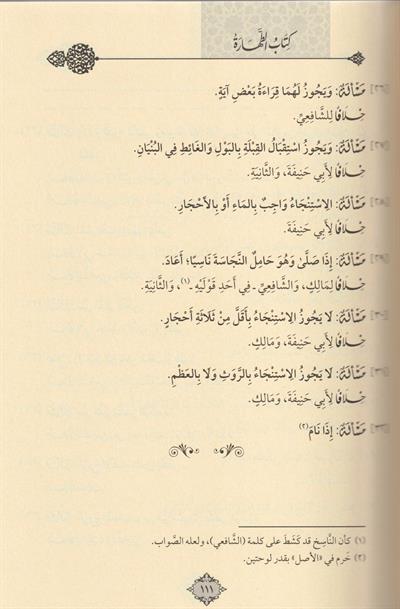 كِتَابُ الطَّهَارَةِ
[٢٦] مَسْأَلَةٌ: وَيَجُوزُ لَهُمَا قِرَاءَةُ بَعْضِ آيَةٍ.
خِلَافًا لِلشَّافِعِيِّ.
[٢٧] مَسْأَلَةٌ: وَيَجُوزُ اسْتِقْبَالُ القِبْلَةِ بِالبَوْلِ وَالغَائِطِ فِي البُنْيَانِ.
خِلَافًا لِأَبِي حَنِيفَةَ، وَالثَّانِيَةِ.
[٢٨] مَسْأَلَةٌ: الِاسْتِنْجَاءُ وَاجِبٌ بِالمَاءِ أَوْ بِالأَحْجَارِ.
خِلَافًا لِأَبِي حَنِيفَةَ.
مَسْأَلَةٌ: إِذَا صَلَّىٰ وَهُوَ حَامِلٌ النَّجَاسَةَ نَاسِيًا؛ أَعَادَ.
خِلَافًا لِمَالِكٍ، وَالشَّافِعِيِّ - فِي أَحَدِ قَوْلَيْهِ -(١)، وَالثَّانِيَةِ.
مَسْأَلَةٌ: لَا يَجُوزُ الِاسْتِنْجَاءُ بِأَقَلَّ مِنْ ثَلَاثَةِ أَحْجَارٍ.
خِلَافًا لِأَبِي حَنِيفَةَ، وَمَالِكٍ.
مَسْأَلَةٌ: لَا يَجُوزُ الِاسْتِنْجَاءُ بِالرَّوَثِ وَلَا بِالعَظْمِ.
خِلَافًا لِأَبِي حَنِيفَةَ، وَمَالِكٍ.
مَسْأَلَةٌ: إِذَا نَامَ(٢)
(١) كأن النَّاسِخ قد كَشَطَ على كلمة (الشَّافعي)، ولعله الصَّواب.
(٢) خَرم في «الأصل» بقدر لوحتين.
١١١